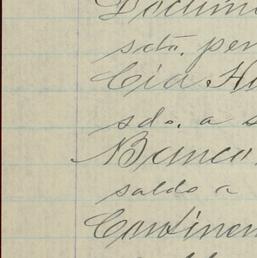 Docum
scto. pen
Cía Hu
sdo. a s
Banco
saldo a
Continen